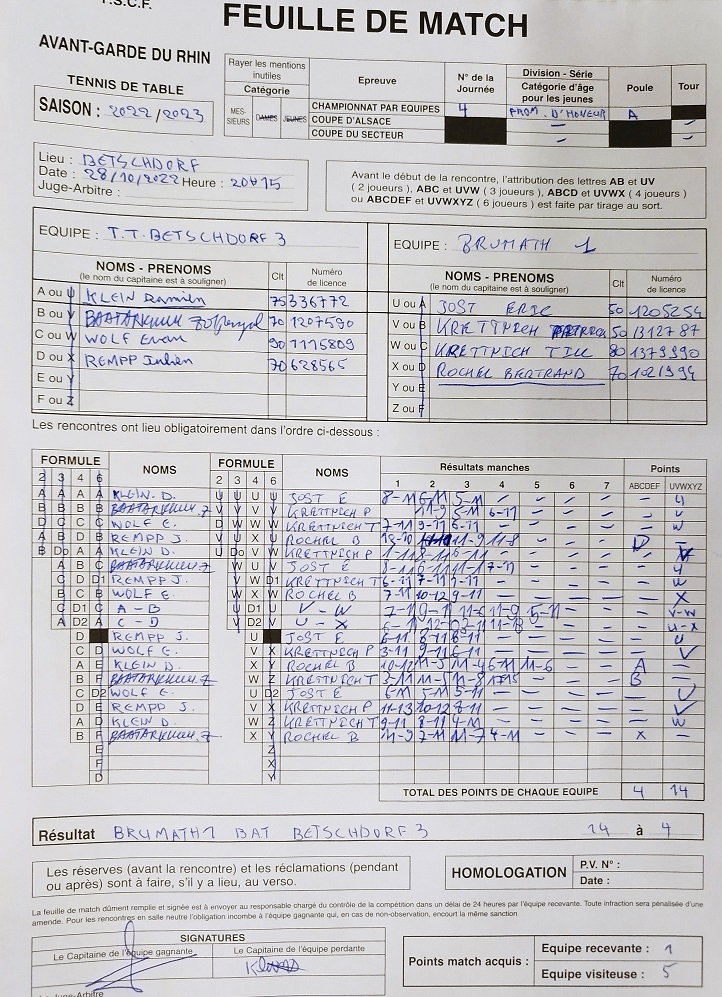 F.S.C.F.
FEUILLE DE MATCH
AVANT-GARDE DU RHIN
TENNIS DE TABLE
SAISON : 2022/2023
Rayer les mentions inutiles
Catégorie
MES-SIEURS DAMES JEUNES
Epreuve
N° de la Journée
Division - Série
Catégorie d'âge pour les jeunes
Poule
Tour
CHAMPIONNAT PAR EQUIPES 4 PROM. D'HONEUR A
COUPE D'ALSACE — —
COUPE DU SECTEUR — —
Lieu : BETSCHDORF
Date : 28/10/2022 Heure : 20H15
Juge-Arbitre :
Avant le début de la rencontre, l'attribution des lettres AB et UV
( 2 joueurs ), ABC et UVW ( 3 joueurs ), ABCD et UVWX ( 4 joueurs )
ou ABCDEF et UVWXYZ ( 6 joueurs ) est faite par tirage au sort.
EQUIPE : T.T. BETSCHDORF 3
EQUIPE : BRUMATH 1
NOMS - PRENOMS Clt Numéro de licence
(le nom du capitaine est à souligner)
A ou U KLEIN Damien 75 336772
B ou V 70 1207590
C ou W WOLF Evan 90 1115809
D ou X REMPP Julien 70 628565
E ou Y
F ou Z
NOMS - PRENOMS Clt Numéro de licence
(le nom du capitaine est à souligner)
U ou A JOST ERIC 50 1205254
V ou B KRETTNICH PATRICK 50 1312787
W ou C KRETTNICH TILL 80 1379390
X ou D ROCHEL BERTRAND 70 1021994
Y ou E
Z ou F
Les rencontres ont lieu obligatoirement dans l'ordre ci-dessous :
FORMULE NOMS FORMULE NOMS Résultats manches Points
2 3 4 6 2 3 4 6 1 2 3 4 5 6 7 ABCDEF UVWXYZ
A A A A KLEIN. D. U U U U JOST E 8-11 6-11 5-11 — — — — — U
B B B B V V V V KRETTNICH P 11-9 5-11 6-11 — — — — V
D C C C WOLF E. W W W KRETTNICH T 7-11 9-11 6-11 — — — — — W
A B D REMPP J. V X U ROCHEL B 11-9 11-8 — — — D —
B Do A A KLEIN D. U Do V V KRETTNICH P 1-11 8-11 6-11 — — — — — V
A B C W U V JOST E 8-11 6-11 11-7 — — — — U
C D D1 REMPP J. V W D1 KRETTNICH T 6-11 7-11 — — — — — W
B C B WOLF E. W X W ROCHEL B 7-11 10-12 9-11 — — — — — X
C D1 C A - B U D1 U V - W 7-11 11-6 11-9 5-11 — — — V-W
A D2 A C - D V D2 V U - X — — — U-X
D REMPP J. U JOST E 6-11 8-11 — — — — — U
C D WOLF E. V X KRETTNICH P 3-11 9-11 6-11 — — — — — V
A E KLEIN D. X Y ROCHEL B 10-12 11-5 11-4 6-11 11-6 — — A —
B F W Z KRETTNICH T 11-5 11-8 — — — B —
C D2 WOLF E. U D2 JOST E 5-11 5-11 — — — — — U
D E REMPP J. V X KRETTNICH P 11-13 10-12 8-11 — — — — — V
A D KLEIN D. W Z KRETTNICH T 9-11 8-11 4-11 — — — — — W
B F X Y ROCHEL B 11-9 7-11 11-7 4-11 — — — X —
E Z
F X
D Y
TOTAL DES POINTS DE CHAQUE EQUIPE 4 14
Résultat BRUMATH 1 BAT BETSCHDORF 3 14 à 4
Les réserves (avant la rencontre) et les réclamations (pendant
ou après) sont à faire, s'il y a lieu, au verso.
HOMOLOGATION
P.V. N° :
Date :
La feuille de match dûment remplie et signée est à envoyer au responsable chargé du contrôle de la compétition dans un délai de 24 heures par l'équipe recevante. Toute infraction sera pénalisée d'une
amende. Pour les rencontres en salle neutre l'obligation incombe à l'équipe gagnante qui, en cas de non-observation, encourt la même sanction
SIGNATURES
Le Capitaine de l'équipe gagnante
Le Capitaine de l'équipe perdante
Le Juge-Arbitre
Points match acquis :
Equipe recevante : 1
Equipe visiteuse : 5